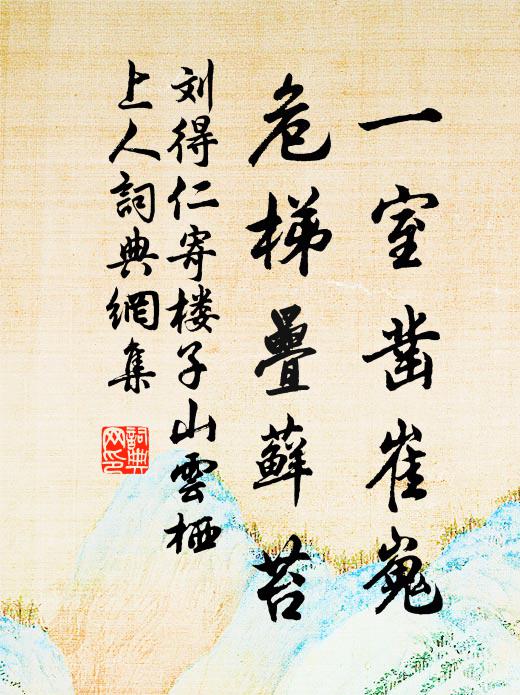 一室凿崔嵬
危梯疊蘚苔
刘得仁寄楼子山雲栖
上人詞典網集
詞典
网印